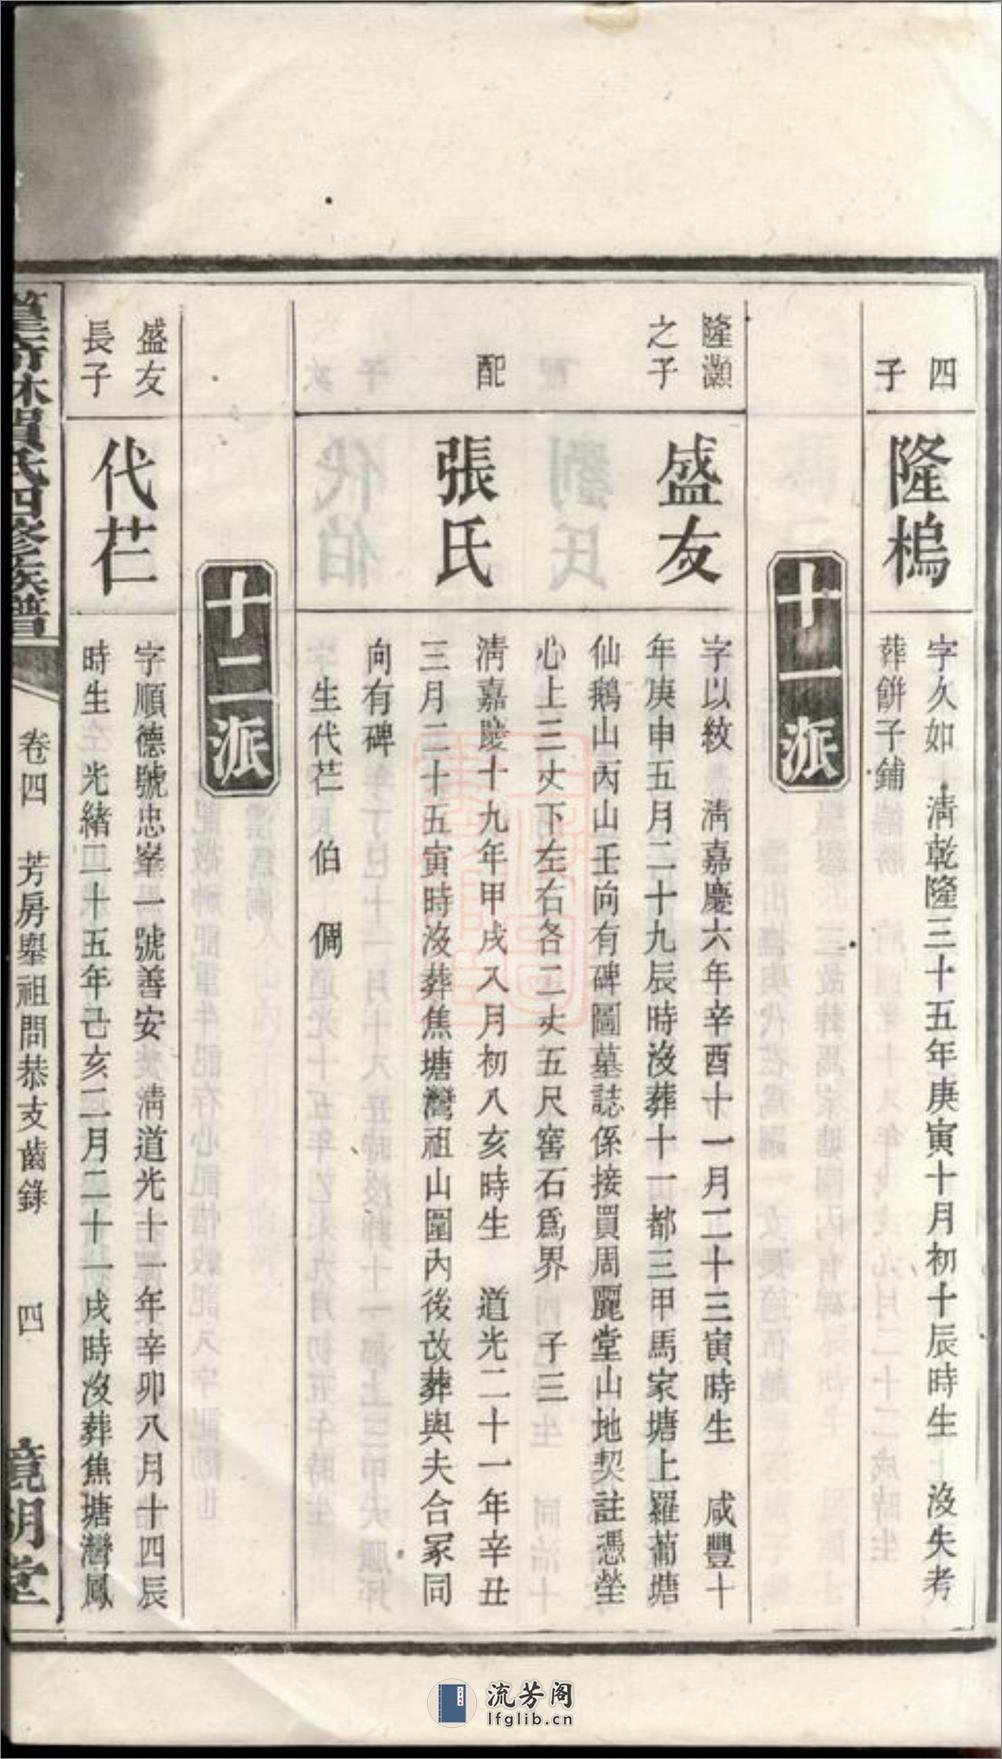 四子
隆槝
字久如 清乾隆三十五年庚寅十月初十辰時生 沒失考
葬餅子鋪
十一派
隆灝之子
盛友
字以紋 清嘉慶六年辛酉十一月二十三寅時生 咸豐十
年庚申五月二十九辰時沒葬十一都三甲馬家塘上羅蔔塘
仙鵝山丙山壬向有碑圖墓誌係接買周麗堂山地契註憑塋
心上三丈下左右各二丈五尺窖石爲界 子三
配
張氏
清嘉慶十九年甲戌八月初八亥時生 道光二十一年辛丑
三月二十五寅時沒葬焦塘灣祖山圍內後改葬與夫合冢同
向有碑
生代芢 伯 倜
十二派
盛友長子
代芢
字順德號忠峯一號善安 清道光十一年辛卯八月十四辰
時生 光緒二十五年己亥二月二十一戌時沒葬焦塘灣鳳
賀氏四修族譜
卷四 芳房舉祖問恭支齒錄 四
鏡湖堂
流芳阁
lfglib.cn